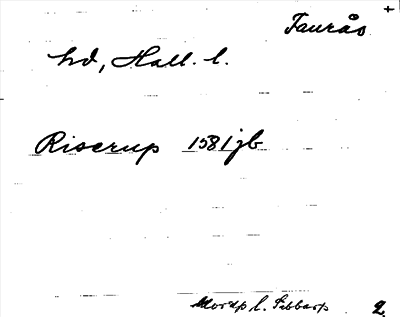 Faurås
hd, Hall. l.
Riserup 1581 jb
Mordp l. Sibbarp 2.